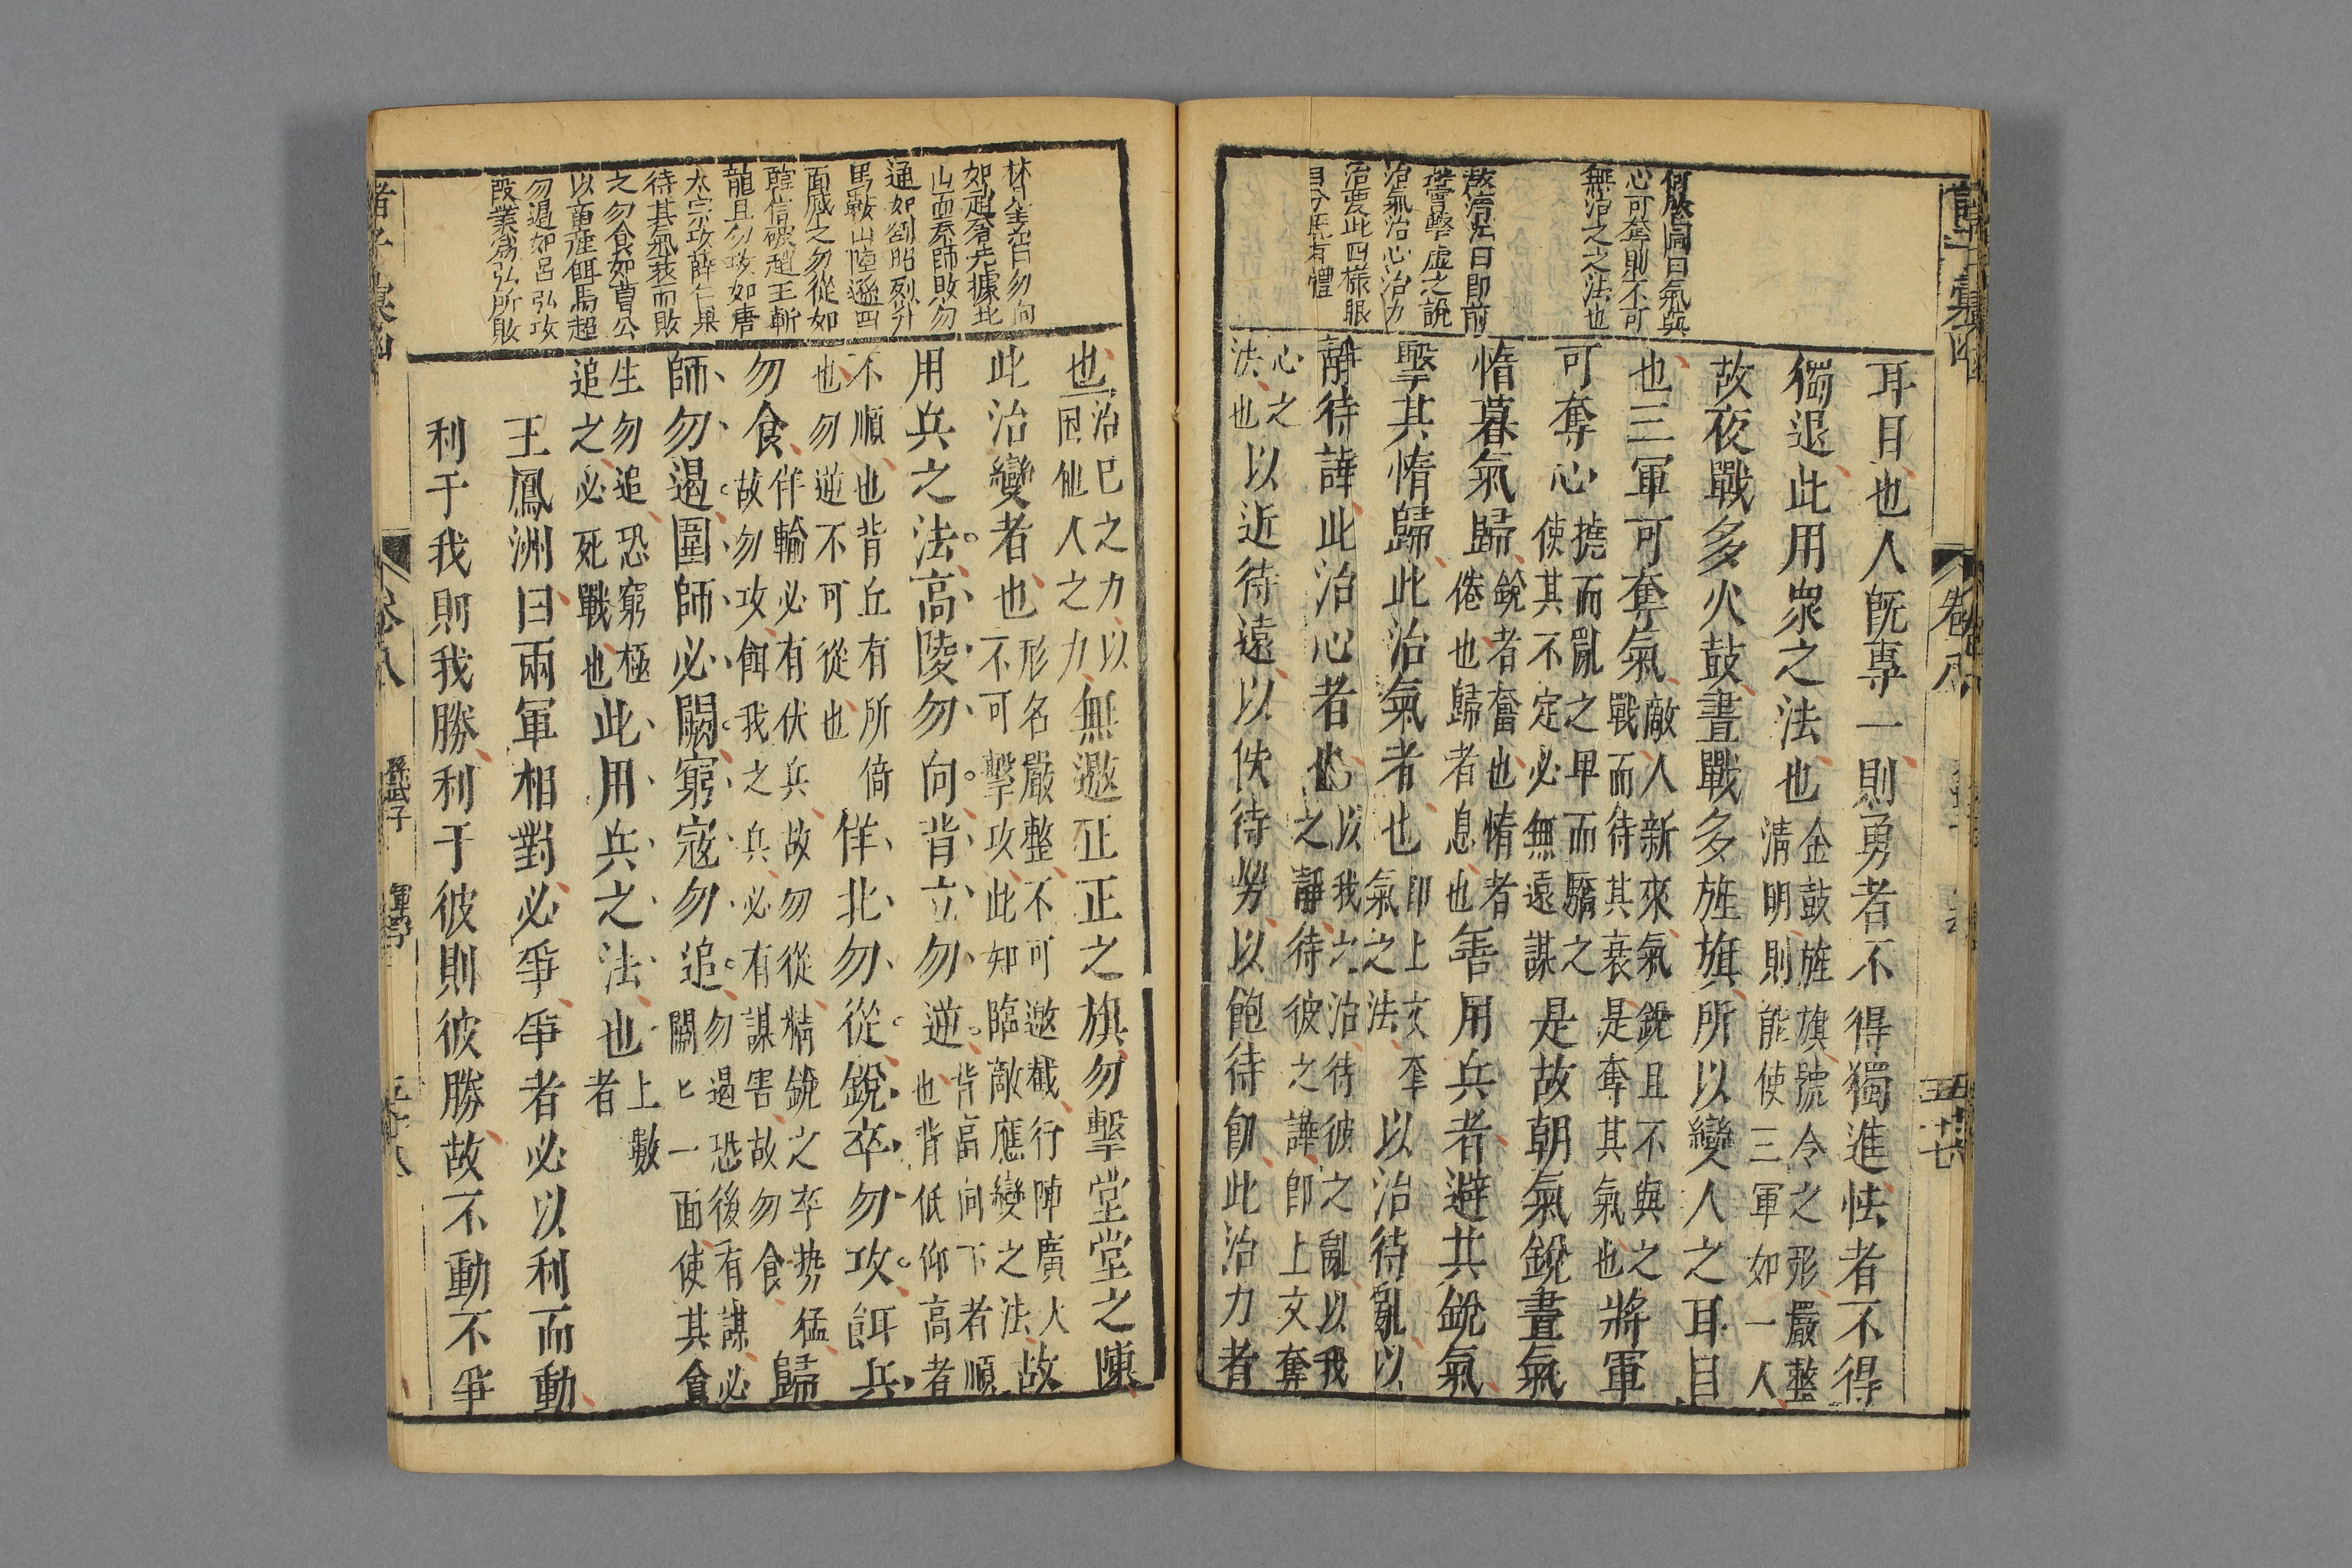 何啟同曰氣與
心可奪則不可
無治之之法也
治法曰即前
嘗擊虛之說
治氣治心治力
治變此四樣眼
目分有體
卷八
五十七
耳目也人既專一則勇者不得獨進怯者不得
獨退此用衆之法也金鼓旌旗號令之形嚴整清明則能使三軍如一人
故夜戰多火鼓晝戰多旌旗所以變人之耳目
也三軍可奪氣敵人新來氣銳且不與之戰而待其衰是奪其氣也將軍
可奪心撓而亂之卑而驕之使其不定必無遠謀是故朝氣銳晝氣
惰暮氣歸銳者奮也惰者倦也歸者息也善用兵者避其銳氣
擊其惰歸此治氣者也即上文奪氣之法以治待亂以
靜待譁此治心者也以我之治待彼之亂以我之靜待彼之譁即上文奪
心之法也以近待遠以佚待勞以飽待飢此治力者
曰勿向
如趙奢先據北
山而秦師敗勿
通如劉昭烈升
馬鞍山陸遜四
面蹙之勿從如
韓信破趙王斬
龍且勿攻如唐
太宗攻薛仁杲
待其氣衰而敗
之勿食如曹公
以畜產餌馬超
勿遏如呂弘攻
段業為弘所敗
也治已之力以因他人之力無邀正正之旗勿擊堂堂之陳
此治變者也形名嚴整不可邀截行陣廣大不可擊攻此知臨敵應變之法故
用兵之法高陵勿向背立勿逆背高向下者順也背低仰高者
不順也背丘有所倚也勿逆不可從也佯北勿從銳卒勿攻餌兵
勿食佯輸必有伏兵故勿從精銳之卒勢猛故勿攻餌我之兵必有謀害故勿食歸
師勿遏圍師必闕窮寇勿追勿遏恐後有謀必闕匕一面使其食
生勿追恐窮極追之必死戰也此用兵之法也上數者
王鳳洲曰兩軍相對必爭爭者必以利而動
利于我則我勝利于彼則彼勝故不動不爭
卷八
孫武子